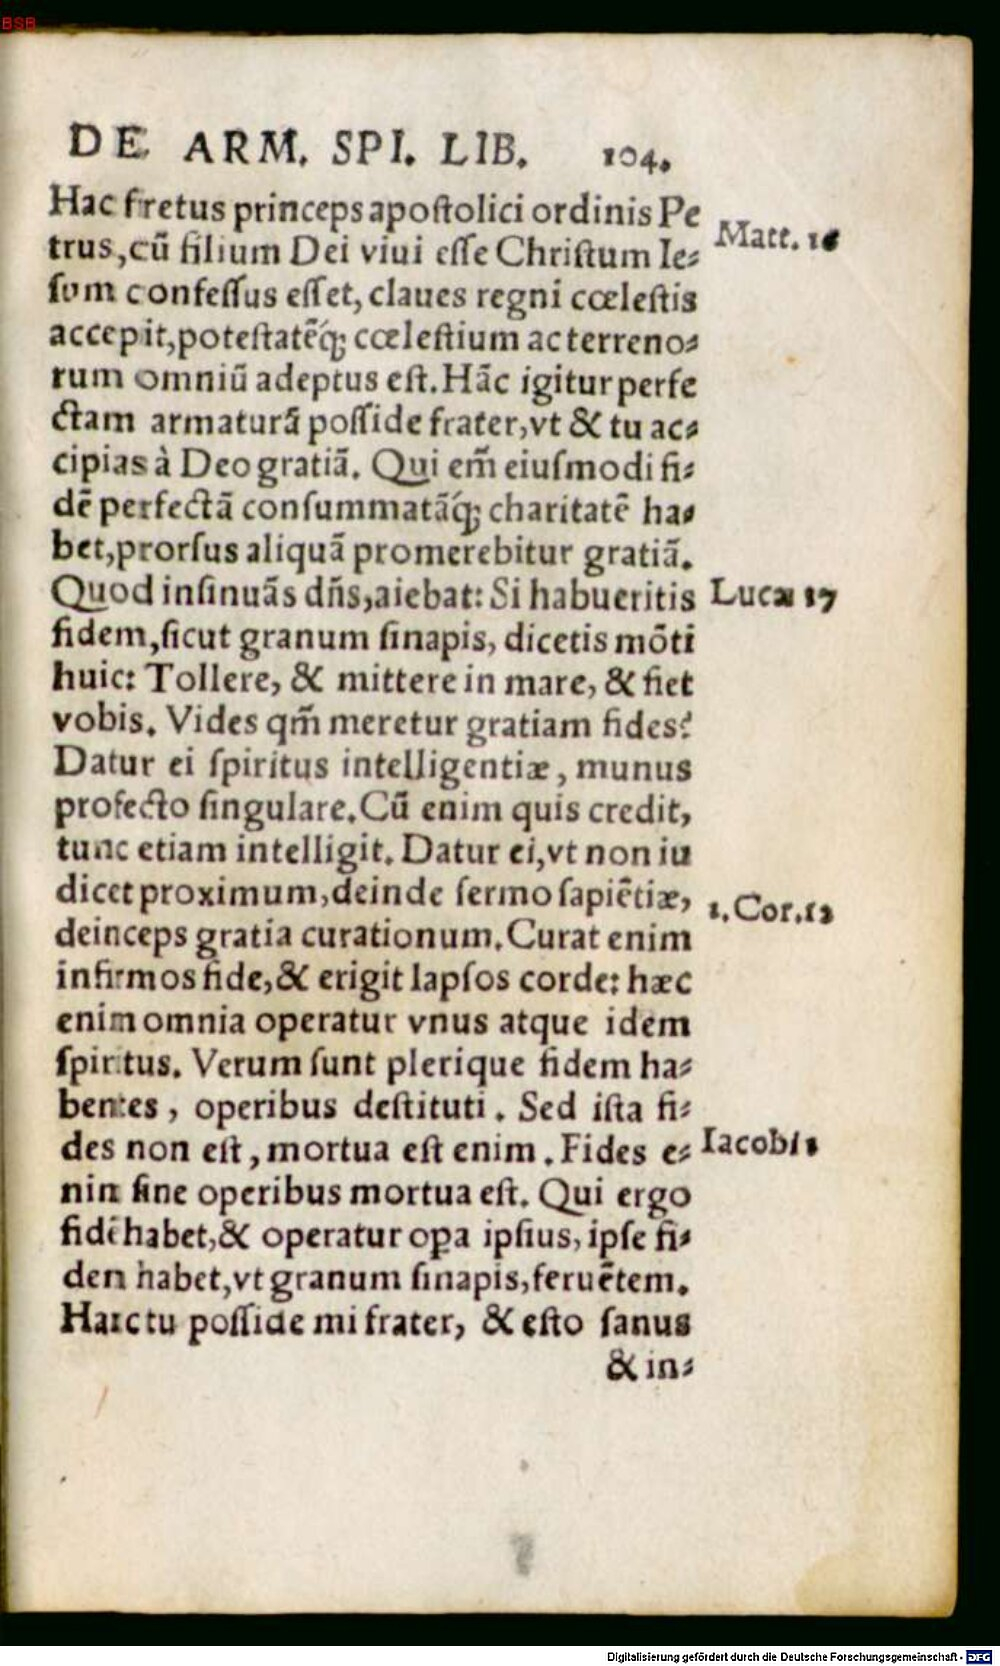 BSB
DE ARM. SPI. LIB. 104.
Hac fretus princeps apoſtolici ordinis Pe
trus, cū filium Dei viui eſſe Chriſtum Ie- Matt. 16
ſum confeſſus eſſet, claues regni cœleſtis
accepit, poteſtatēq́; cœleſtium ac terreno-
rum omniū adeptus eſt. Hāc igitur perfe
ctam armaturā poſſide frater, vt & tu ac-
cipias à Deo gratiā. Qui em̄ eiuſmodi fi-
dē perfectā conſummatāq́; charitatē ha-
bet, prorſus aliquā promerebitur gratiā.
Quod inſinuās dn̄s, aiebat: Si habueritis Lucæ 17
fidem, ſicut granum ſinapis, dicetis mōti
huic: Tollere, & mittere in mare, & fiet
vobis. Vides qm̄ meretur gratiam fides?
Datur ei ſpiritus intelligentiæ, munus
profecto ſingulare. Cū enim quis credit,
tunc etiam intelligit. Datur ei, vt non iu
dicet proximum, deinde ſermo ſapiētiæ, 1. Cor. 12
deinceps gratia curationum. Curat enim
infirmos fide, & erigit lapſos corde: hæc
enim omnia operatur vnus atque idem
ſpiritus. Verum ſunt plerique fidem ha-
bentes, operibus deſtituti. Sed iſta fi-
des non eſt, mortua eſt enim. Fides e- Iacobi
nim ſine operibus mortua eſt. Qui ergo
fidē habet, & operatur oꝑa ipſius, ipſe fi-
dem habet, vt granum ſinapis, feruētem.
Hanc tu poſſide mi frater, & eſto ſanus
& in-
Digitalisierung gefördert durch die Deutsche Forschungsgemeinschaft - DFG